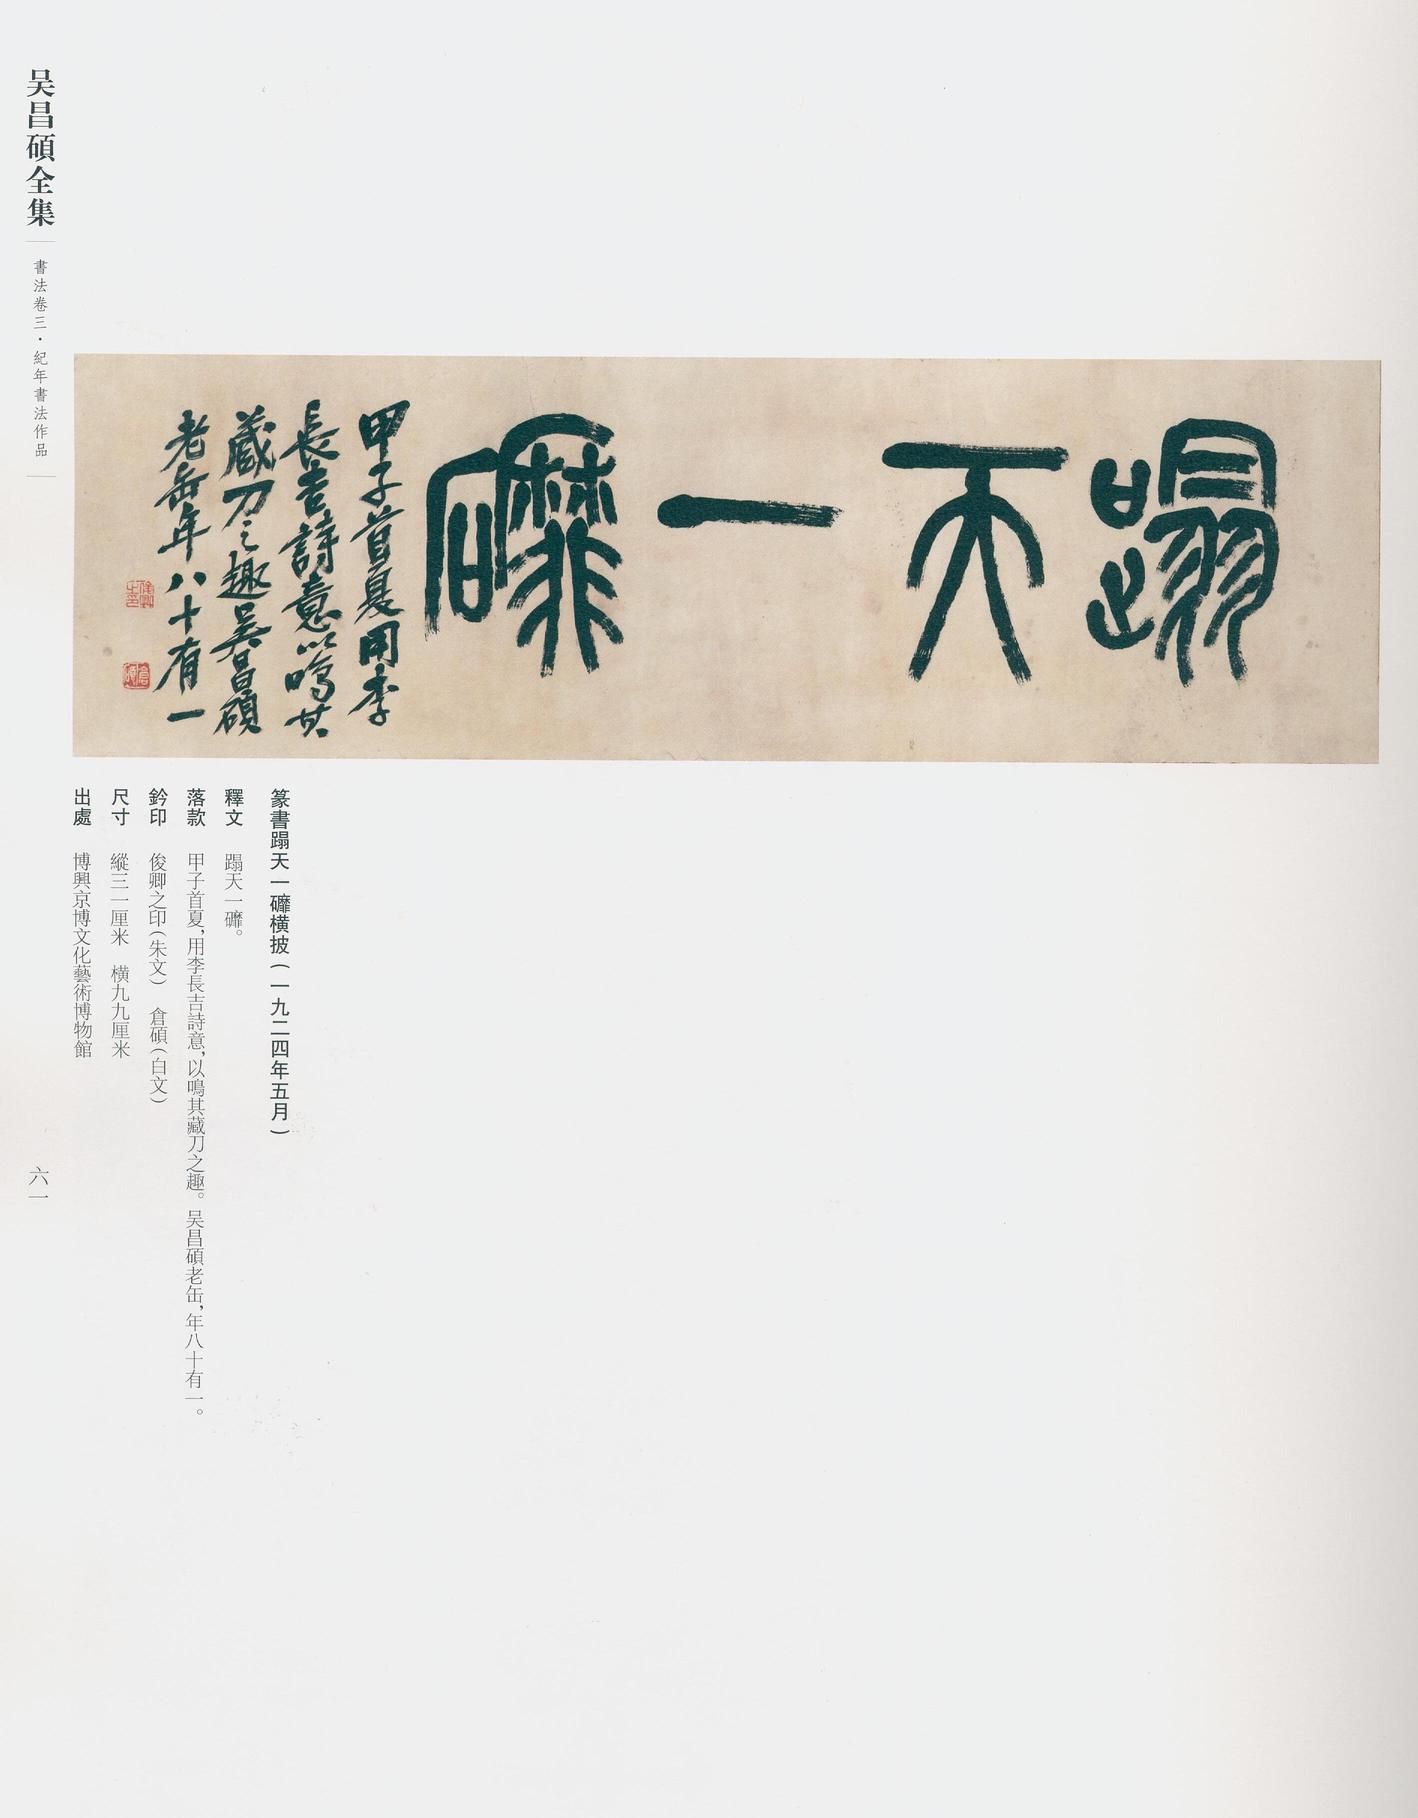 吴昌碩全集
書法卷三·紀年書法作品
蹋天一䃺
甲子首夏用李
長吉詩意以鳴其
藏刀之趣吴昌碩
老缶年八十有一
俊卿之印
倉碩
篆書蹋天一䃺横披(一九二四年五月)
釋文 蹋天一䃺。
落款 甲子首夏,用李長吉詩意,以鳴其藏刀之趣。吴昌碩老缶,年八十有一。
鈐印 俊卿之印(朱文) 倉碩(白文)
尺寸 縱三一厘米 横九九厘米
出處 博興京博文化藝術博物館
六一